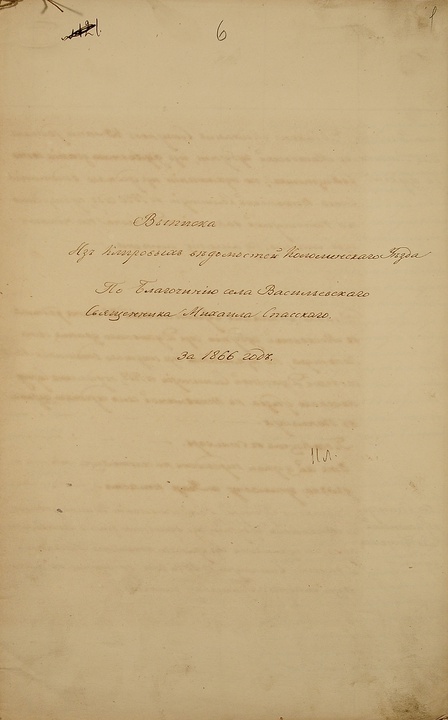 6
Выписка
Изъ клировыхъ ведомостей Коломенскаго Уѣзда
По Благочинію села Васильевскаго
Священника Михаила Спасскаго.
за 1866 годъ.
11 л.